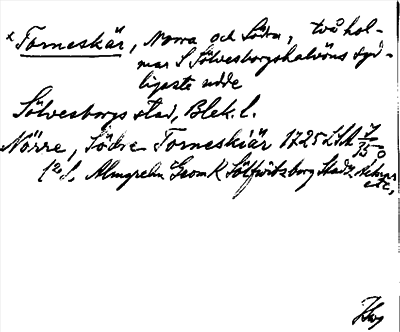 x Torneskär, Norra och Södra, två hol-
mar S Sölvesborgshalvöns syd-
ligaste udde
Sölvesborgs stad, Blek. l.
Norre, Södre Torneskiär 1725 LSA
Almgrehn Geom K Sölfwitsborg Stadz
etc,